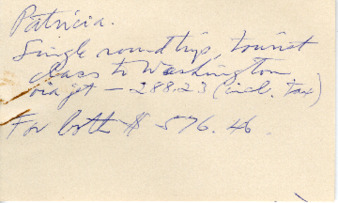 Patricia.
Single roundtrip, tourist
class to Washington
via jet — 288.23 (incl. tax)
For both $ 576.46.